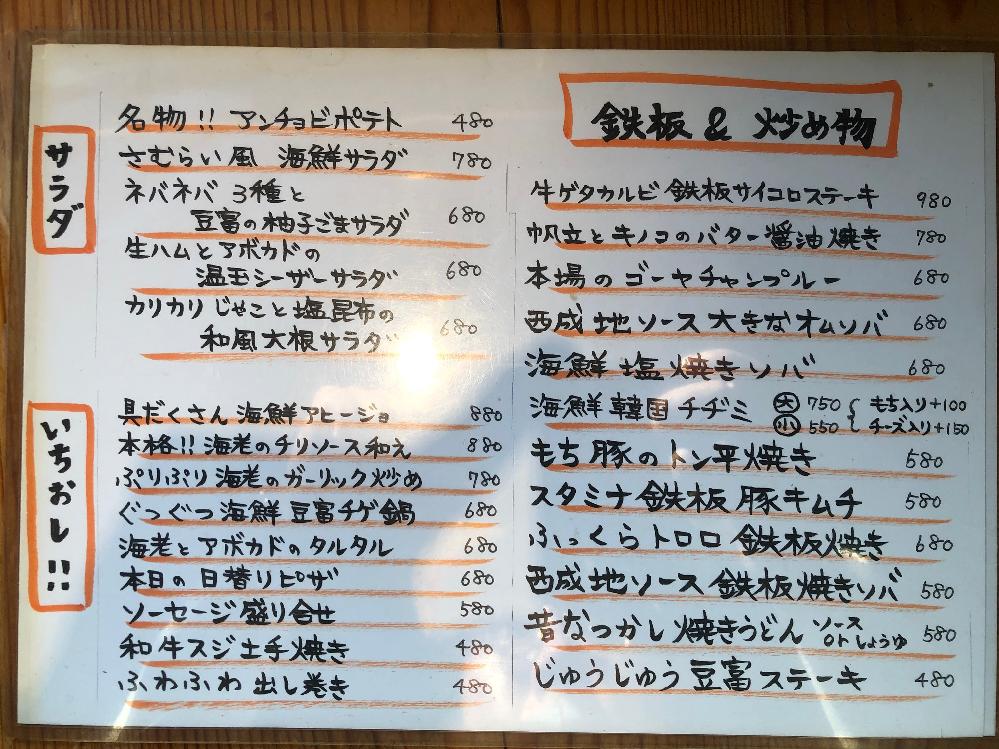 サラダ
名物!! アンチョビポテト 480
さむらい風 海鮮サラダ 780
ネバネバ 3種と
豆富の柚子ごまサラダ 680
生ハムとアボカドの
温玉シーザーサラダ 680
カリカリじゃこと塩昆布の
和風大根サラダ 680
いちおし!!
具だくさん海鮮アヒージョ 880
本格!!海老のチリソース和え 880
ぷりぷり海老のガーリック炒め 780
ぐつぐつ海鮮豆富チゲ鍋 680
海老とアボカドのタルタル 680
本日の日替りピザ 680
ソーセージ盛り合せ 580
和牛スジ土手焼き 480
ふわふわ出し巻き 480
鉄板 & 炒め物
牛ゲタカルビ 鉄板サイコロステーキ 980
帆立とキノコのバター醤油焼き 780
本場のゴーヤチャンプルー 680
西成地ソース大きなオムソバ 680
海鮮塩焼きソバ 680
海鮮韓国チヂミ 大 750 もち入り+100
小 550 チーズ入り+150
もち豚のトン平焼き 580
スタミナ鉄板豚キムチ 580
ふっくらトロロ鉄板焼き 680
西成地ソース鉄板焼きソバ 580
昔なつかし焼きうどん ソース
orしょうゆ 580
じゅうじゅう豆富ステーキ 480